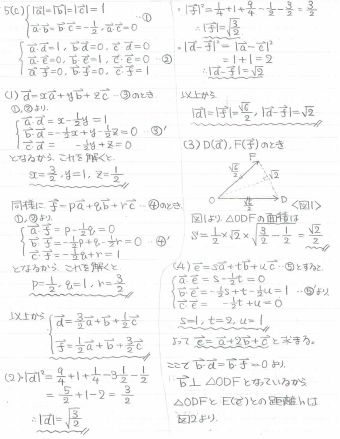 5(C) { |a⃗|=|b⃗|=|c⃗|=1
a⃗・b⃗=b⃗・c⃗=-1/2, a⃗・c⃗=0 …①
{ a⃗・d⃗=1, b⃗・d⃗=0, c⃗・d⃗=0
a⃗・e⃗=0, b⃗・e⃗=1, c⃗・e⃗=0 …②
a⃗・f⃗=0, b⃗・f⃗=0, c⃗・f⃗=1
(1) d⃗=xa⃗+yb⃗+zc⃗ …③のとき
①,②より、
{ a⃗・d⃗=x-1/2y=1
b⃗・d⃗=-1/2x+y-1/2z=0 …③'
c⃗・d⃗= -1/2y+z=0
となるから、これを解くと、
x=3/2, y=1, z=1/2
同様に f⃗=pa⃗+qb⃗+rc⃗ …④のとき
①,②より、
{ a⃗・f⃗=p-1/2q=0
b⃗・f⃗=-1/2p+q-1/2r=0 …④'
c⃗・f⃗=-1/2q+r=1
となるから、これを解くと、
p=1/2, q=1, r=3/2
以上から { d⃗=3/2a⃗+b⃗+1/2c⃗
f⃗=1/2a⃗+b⃗+3/2c⃗
(2)・|d⃗|²=9/4+1+1/4-3・1/2-1/2
=5/2+1-2=3/2
∴|d⃗|=√3/2
・|f⃗|²=1/4+1+9/4-1/2-3/2=3/2
∴|f⃗|=√3/2
・|d⃗-f⃗|²=|a⃗-c⃗|²
=1+1=2
∴|d⃗-f⃗|=√2
以上から
|d⃗|=|f⃗|=√6/2, |d⃗-f⃗|=√2
(3) D(d⃗), F(f⃗)のとき
F
√6/2
√2
O
√6/2
D
<図1>
図1より、△ODFの面積は
S=1/2×√2×√3/2-1/2=√2/2
(4) e⃗=sa⃗+tb⃗+uc⃗ …⑤とすると
{ a⃗・e⃗=s-1/2t=0
b⃗・e⃗=-1/2s+t-1/2u=1 …⑤'より
c⃗・e⃗= -1/2t+u=0
s=1, t=2, u=1
よって e⃗=a⃗+2b⃗+c⃗ と求まる。
ここで b⃗・d⃗=b⃗・f⃗=0 より、
b⃗⊥△ODFとなっているから
△ODFとE(e⃗)との距離hは
図2より、